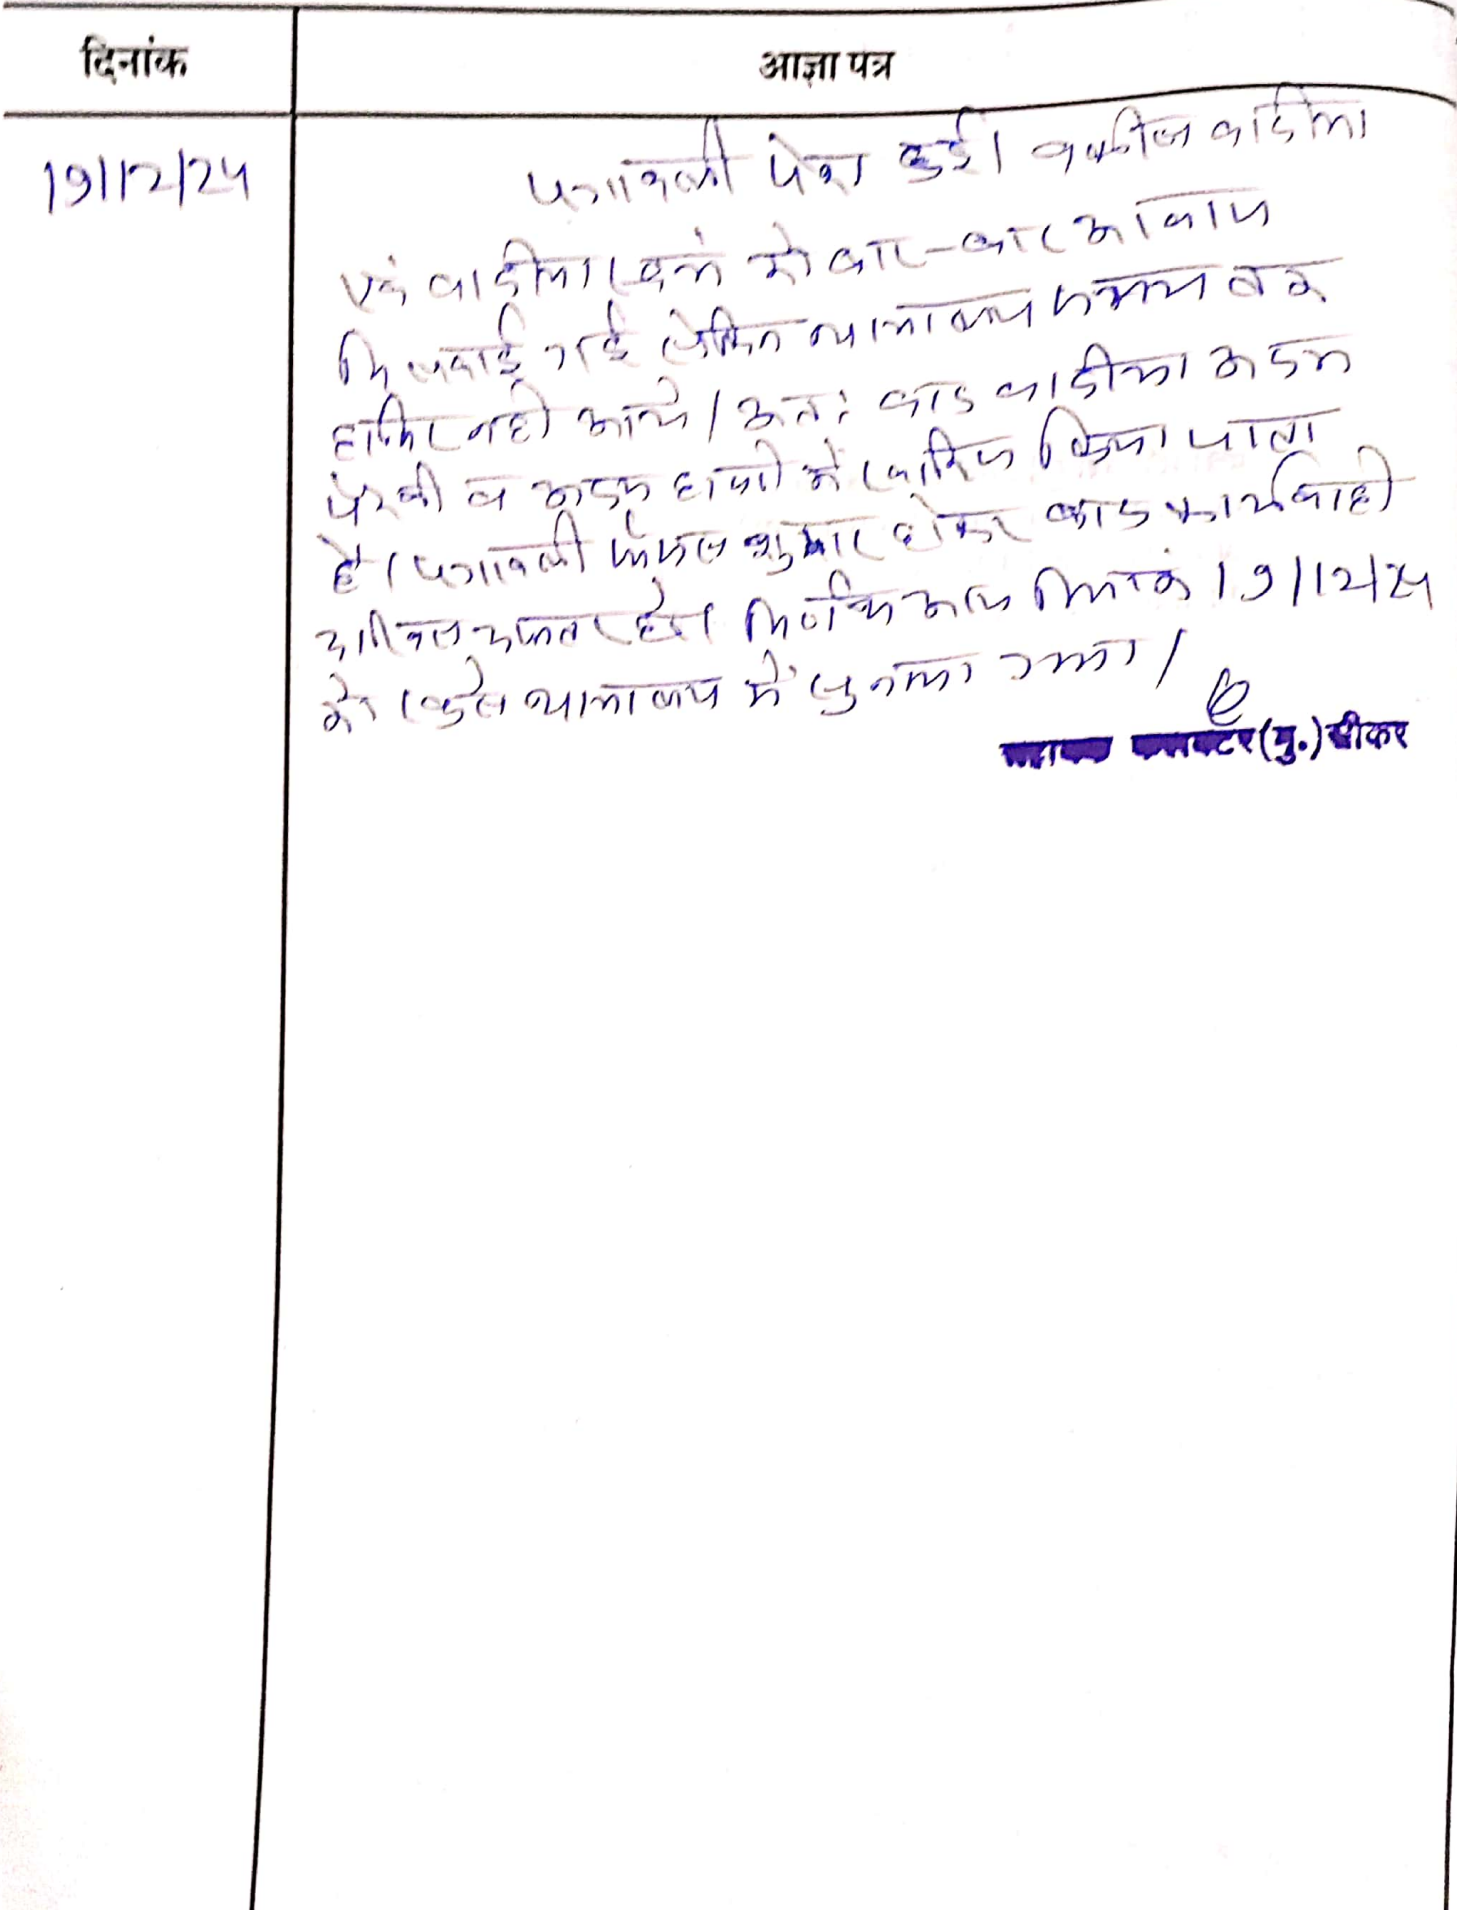 दिनांक
आज्ञा पत्र
19/12/24
पत्रावली पेश हुई। वकील वादीया
एवं वादीया स्वयं को बार-बार आवाज
दिलवाई गई लेकिन न्यायालय समय तक
हाजिर नही आये। अतः वाद वादीया अदम
पैरवी व अदम हाजरी में खारिज किया जाता
है। पत्रावली फैसल शुमार होकर बाद कार्यवाही
दाखिल दफ्तर हो। निर्णय आज दिनांक 19/12/24
को खुले न्यायालय में सुनाया गया।
कलक्टर (मु.) सीकर